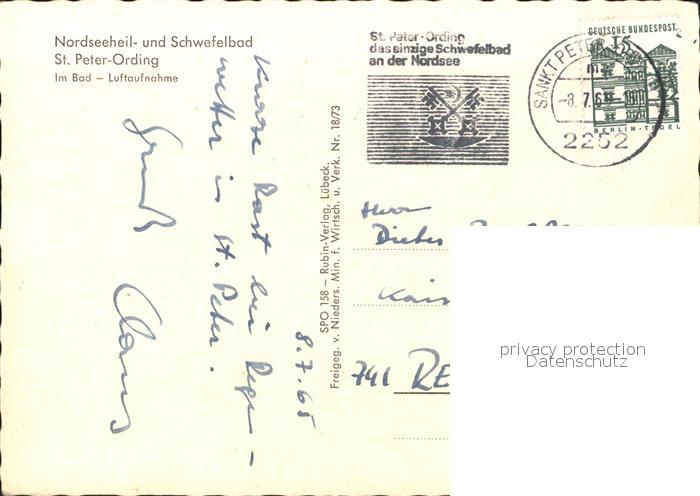 Nordseeheil- und Schwefelbad
St. Peter-Ording
Im Bad – Luftaufnahme
Kurze Rast bei Rege-
wetter in St. Peter.
Gruß
Claus
8.7.65
SPO 158 – Rubin-Verlag, Lübeck.
Freigeg. v. Nieders. Min. f. Wirtsch. u. Verk. Nr. 18/73
St. Peter-Ording
das einzige Schwefelbad
an der Nordsee
SANKT PETER
-8.7.6
2252
DEUTSCHE BUNDESPOST
15
BERLIN-TEGEL
Herr
Dieter
Kais
741 RE
privacy protection
Datenschutz